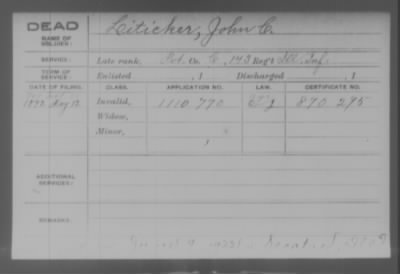 DEAD
NAME OF SOLDIER:
Liticker, John C.
SERVICE:
Late rank, Pvt. Co. C, 143 Reg't Ill. Inf.
TERM OF SERVICE:
Enlisted , 1 Discharged , 1
DATE OF FILING. CLASS. APPLICATION NO. LAW. CERTIFICATE NO.
1892 Invalid, 1110.770 870.295
Widow,
Minor,
ADDITIONAL SERVICES:
REMARKS: